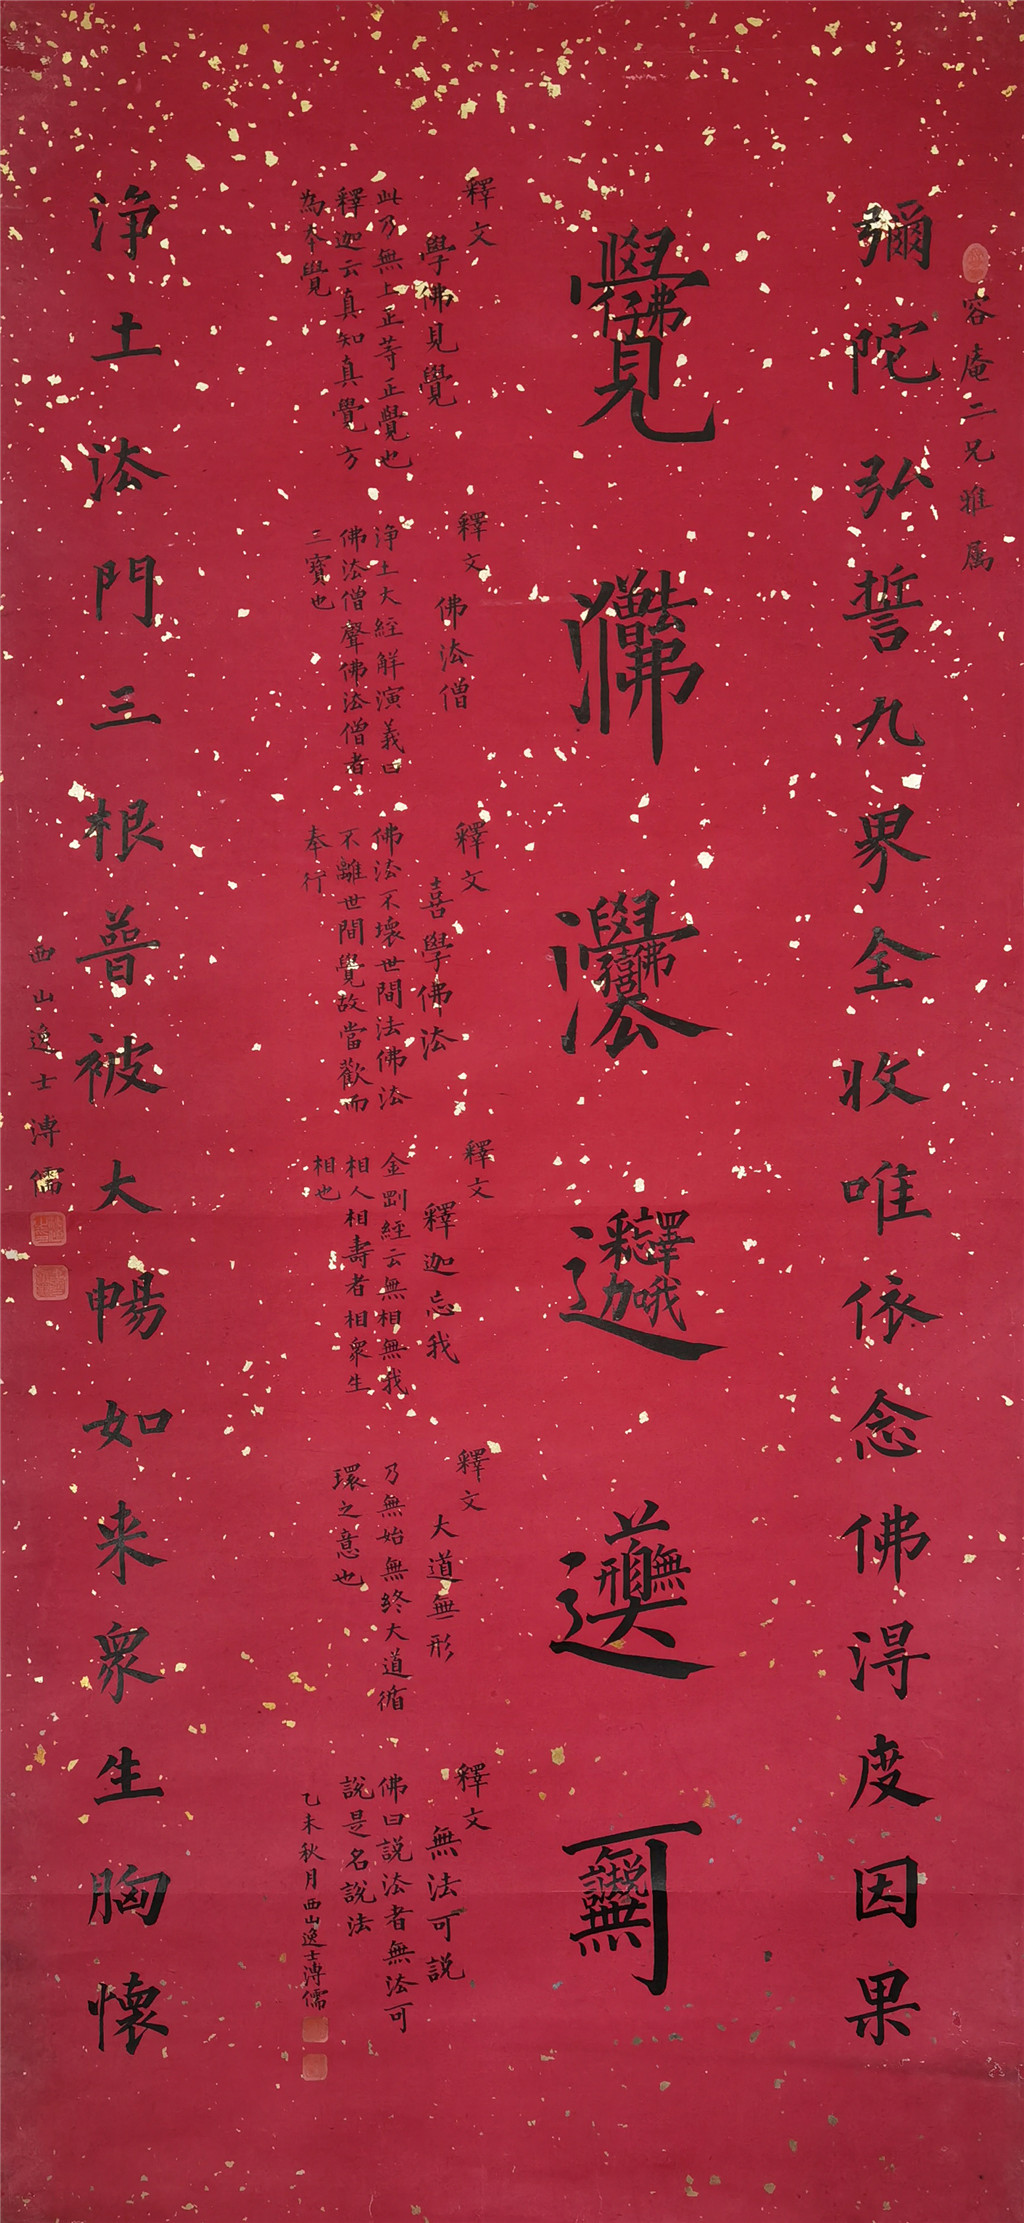 容庵二兄雅属
彌陀弘誓九界全收唯依念佛得度因果
釋文
學佛見覺
此乃無上正等正覺也
釋迦云真知真覺方
為本覺
釋文
佛法僧
淨土大經解演義曰
佛法僧聲佛法僧者
三寶也
釋文
喜學佛法
佛法不壞世間法佛法
不離世間覺故當歡而
奉行
釋文
釋迦忘我
金剛經云無相無我
相人相壽者相眾生
相也
釋文
大道無形
乃無始無終大道循
環之意也
釋文
無法可説
佛曰説法者無法可
説是名説法
乙未秋月西山逸士溥儒
浄土法門三根普被大暢如来眾生胸懷
西山逸士溥儒